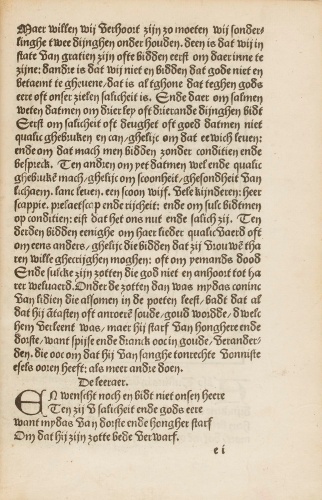 Maer willen wij verhoort zijn zo moeten wij sonder-
linghe twee dijnghen onder houden. deen is dat wij in
state van gratien zijn ofte bidden eerst om daer inne te
zijne: dandre is dat wij niet en bidden dat gode niet en
betaemt te gheuene/ dat is al tghone dat teghen gods
eere oft onser zielen salicheit is. Ende daer om salmen
weten datmen om drier ley oft drierande dijnghen bidt
Eerst om salicheit oft deughet oft goed datmen niet
qualic ghebruken en can/ ghelijc om dat eewich leuen:
ende om dat mach men bidden zonder conditien ende
bespreck. Ten andren om yet datmen wel ende qualic
ghebruke mach/ ghelijc om scoonheit/ ghesondheit van
lichaem. lanc leuen. een scoon wijf. vele kijnderen: heer
scappie. prelaetscap ende rijcheit: ende om sulc bidtmen
op conditien: eist dat het ons nut ende salich zij. Ten
derden bidden eenighe om haer lieder qualicvaerd oft
om eens anders/ ghelijc die bidden dat zij vrouwē tha
ren wille ghecrijghen moghen: oft om yemands dood
Ende sulcke zijn zotten die god niet en anhoort tot ha
rer welvaerd. Onder de zotten dan was mydas coninc
van lidien die alsomen in de poeten leest/ badt dat al
dat hij ātasten oft anroerē soude/ goud wordde/ dwelc
hem verleent was/ maer hij starf van honghere ende
dorste/ want spijse ende dranck ooc in goude/ verander-
den. die ooc om dat hij van sanghe tonrechte vonniste
esels ooren heeft: als meer andre doen.
De leeraer.
EN wenscht noch en bidt niet onsen heere
Ten zij v salicheit ende gods eere
want mydas van dorste ende hongher starf
Om dat hij zijn zotte bede verwarf.
e i